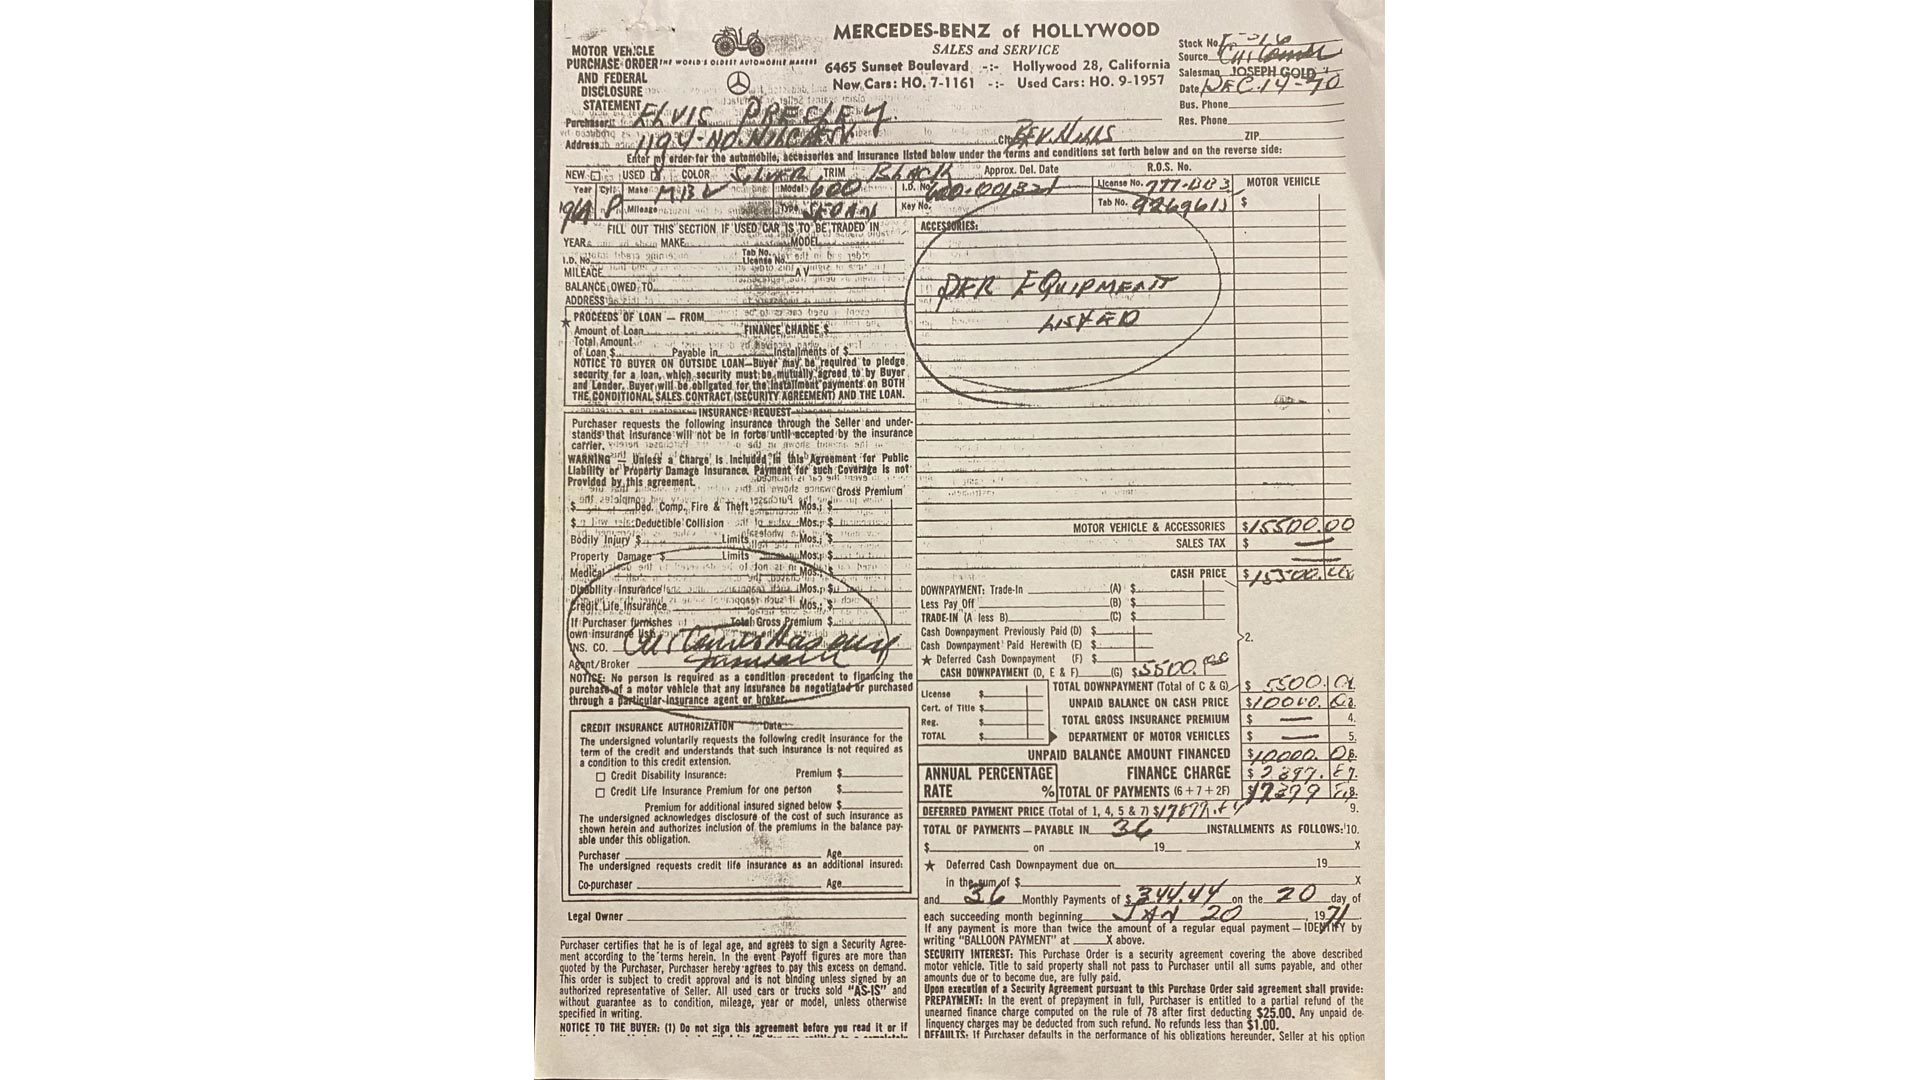 MERCEDES-BENZ of HOLLYWOOD
SALES and SERVICE
6465 Sunset Boulevard -:- Hollywood 28, California
New Cars: HO. 7-1161 -:- Used Cars: HO. 9-1957
MOTOR VEHICLE
PURCHASE ORDER
AND FEDERAL
DISCLOSURE
STATEMENT
THE WORLD'S OLDEST AUTOMOBILE MAKERS
Stock No.
Source
Salesman JOSEPH GOLD
Date DEC. 14-70
Bus. Phone
Res. Phone
Purchaser ELVIS PRESLEY
Address 1194-NO. City BEV. HILLS ZIP
Enter my order for the automobile, accessories and insurance listed below under the terms and conditions set forth below and on the reverse side:
NEW USED COLOR SILVER TRIM BLACK Approx. Del. Date R.O.S. No.
Year Cyl. Make MBZ Model 600 I.D. No. License No. MOTOR VEHICLE
8 Mileage Type SEDAN Key No. Tab No. $
FILL OUT THIS SECTION IF USED CAR IS TO BE TRADED IN
YEAR MAKE MODEL
I.D. No. Tab No. License No.
MILEAGE AV
BALANCE OWED TO
ADDRESS
★ PROCEEDS OF LOAN — FROM
Amount of Loan FINANCE CHARGE $
Total Amount
of Loan $ Payable in Installments of $
NOTICE TO BUYER ON OUTSIDE LOAN—Buyer may be required to pledge
security for a loan, which security must be mutually agreed to by Buyer
and Lender. Buyer will be obligated for the installment payments on BOTH
THE CONDITIONAL SALES CONTRACT (SECURITY AGREEMENT) AND THE LOAN.
INSURANCE REQUEST
Purchaser requests the following insurance through the Seller and under-
stands that insurance will not be in force until accepted by the insurance
carrier.
WARNING — Unless a Charge is Included in this Agreement for Public
Liability or Property Damage Insurance, Payment for such Coverage is not
Provided by this agreement.
Gross Premium
$ Ded. Comp. Fire & Theft Mos.; $
$ Deductible Collision Mos.; $
Bodily Injury $ Limits Mos.; $
Property Damage $ Limits Mos.; $
Medical Mos.; $
Disability Insurance Mos.; $
Credit Life Insurance Mos.; $
If Purchaser furnishes Total Gross Premium $
own insurance List
INS. CO. Customer Has own
Agent/Broker Insurance
NOTICE: No person is required as a condition precedent to financing the
purchase of a motor vehicle that any insurance be negotiated or purchased
through a particular insurance agent or broker.
CREDIT INSURANCE AUTHORIZATION Date
The undersigned voluntarily requests the following credit insurance for the
term of the credit and understands that such insurance is not required as
a condition to this credit extension.
Credit Disability Insurance: Premium $
Credit Life Insurance Premium for one person $
Premium for additional insured signed below $
The undersigned acknowledges disclosure of the cost of such insurance as
shown herein and authorizes inclusion of the premiums in the balance pay-
able under this obligation.
Purchaser Age
The undersigned requests credit life insurance as an additional insured:
Co-purchaser Age
Legal Owner
Purchaser certifies that he is of legal age, and agrees to sign a Security Agree-
ment according to the terms herein. In the event Payoff figures are more than
quoted by the Purchaser, Purchaser hereby agrees to pay this excess on demand.
This order is subject to credit approval and is not binding unless signed by an
authorized representative of Seller. All used cars or trucks sold "AS-IS" and
without guarantee as to condition, mileage, year or model, unless otherwise
specified in writing.
NOTICE TO THE BUYER: (1) Do not sign this agreement before you read it or if
ACCESSORIES:
PER EQUIPMENT
LISTED
MOTOR VEHICLE & ACCESSORIES $15500.00
SALES TAX $ —
CASH PRICE $15500.
DOWNPAYMENT: Trade-In (A) $
Less Pay Off (B) $
TRADE-IN (A less B) (C) $
Cash Downpayment Previously Paid (D) $
Cash Downpayment Paid Herewith (E) $
2.
★ Deferred Cash Downpayment (F) $
CASH DOWNPAYMENT (D, E & F) (G) $5500.00
TOTAL DOWNPAYMENT (Total of C & G) $ 5500
License $
Cert. of Title $
Reg. $
TOTAL $
UNPAID BALANCE ON CASH PRICE $10000. 3.
TOTAL GROSS INSURANCE PREMIUM $ — 4.
DEPARTMENT OF MOTOR VEHICLES $ — 5.
UNPAID BALANCE AMOUNT FINANCED $10000. 6.
ANNUAL PERCENTAGE
RATE %
FINANCE CHARGE $ 7.
TOTAL OF PAYMENTS (6 + 7 + 2F) 8.
DEFERRED PAYMENT PRICE (Total of 1, 4, 5 & 7) $ 9.
TOTAL OF PAYMENTS — PAYABLE IN 36 INSTALLMENTS AS FOLLOWS: 10.
$ on 19 X
★ Deferred Cash Downpayment due on 19
in the sum of $ X
and 36 Monthly Payments of $ 344.44 on the 20 day of
each succeeding month beginning JAN 20, 1971
If any payment is more than twice the amount of a regular equal payment — IDENTIFY by
writing "BALLOON PAYMENT" at X above.
SECURITY INTEREST: This Purchase Order is a security agreement covering the above described
motor vehicle. Title to said property shall not pass to Purchaser until all sums payable, and other
amounts due or to become due, are fully paid.
Upon execution of a Security Agreement pursuant to this Purchase Order said agreement shall provide:
PREPAYMENT: In the event of prepayment in full, Purchaser is entitled to a partial refund of the
unearned finance charge computed on the rule of 78 after first deducting $25.00. Any unpaid de-
linquency charges may be deducted from such refund. No refunds less than $1.00.
DEFAULTS: If Purchaser defaults in the performance of his obligations hereunder, Seller at his option